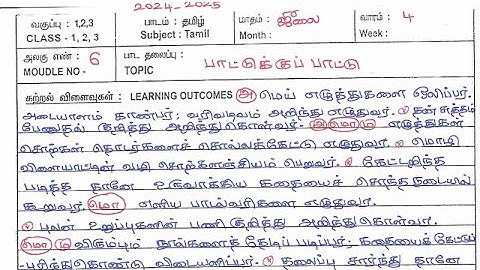 2024-2025
வகுப்பு : 1,2,3 பாடம் : தமிழ் மாதம் : ஜூலை வாரம் : 4
CLASS - 1, 2, 3 Subject : Tamil Month : Week :
அலகு எண் : 6 பாட தலைப்பு :
MOUDLE NO - TOPIC பாட்டுக்குப் பாட்டு
கற்றல் விளைவுகள் : LEARNING OUTCOMES அ மெய் எழுத்துகளை ஒலிப்பர்.
அடையாளம் காண்பர்; வரிவடிவம் அறிந்து எழுதுவர். தன் சுத்தம்
பேணுதல் குறித்து அறிந்துகொள்வர். அ மொ டு எழுத்துகள்
சொற்கள் தொடர்களைச் சொல்லக்கேட்டு எழுதுவர். மொழி
விளையாட்டின் வழி சொற்களஞ்சியம் பெறுவர். கேட்டறிந்த
படித்த தானே உருவாக்கிய கதையைச் சொந்தநடையில்
கூறுவர். மொ எளிய பாய்வரிகளை எழுதுவர்.
புலன் உறுப்புகளின் பணி குறித்து அறிந்துகொள்வர்.
மொ டு விரும்பும் நூல்களைத் தேடிப் படிப்பர்; கதையைக் கேட்டுப்
புரிந்துகொண்டு விடையளிப்பர். தலைப்பு சார்ந்து தானே